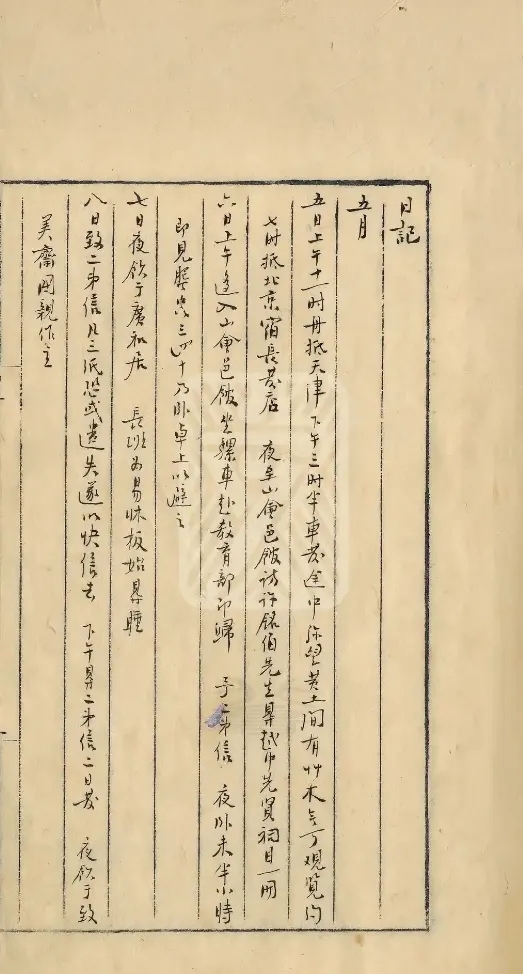 日記
五月
五日上午十一时舟抵天津 下午三时半車發途中弥望黄土间有艸木无可观覽约
七时抵北京宿長發店 夜至山會邑館訪许銘伯先生㝵越中先賢祠目一册
六日上午迻入山會邑館坐騾車赴教育部即歸 予二弟信 夜臥未半小時
即見蜰蟲三四十乃臥卓上以避之
七日夜飲于廣和居 長班为易牀板始㝵睡
八日致二弟信凡三纸恐或遺失遂以快信去 下午㝵二弟信二日發 夜飲于致
美齋国親作主